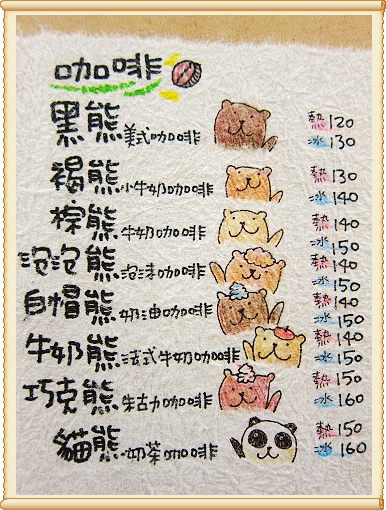 咖啡
黑熊 美式咖啡 熱120
冰130
褐熊 小牛奶咖啡 熱130
冰140
棕熊 牛奶咖啡 熱140
冰150
泡泡熊 泡沫咖啡 熱140
冰150
白帽熊 奶油咖啡 熱140
冰150
牛奶熊 法式牛奶咖啡 熱140
冰150
巧克熊 朱古力咖啡 熱150
冰160
貓熊 奶茶咖啡 熱150
冰160